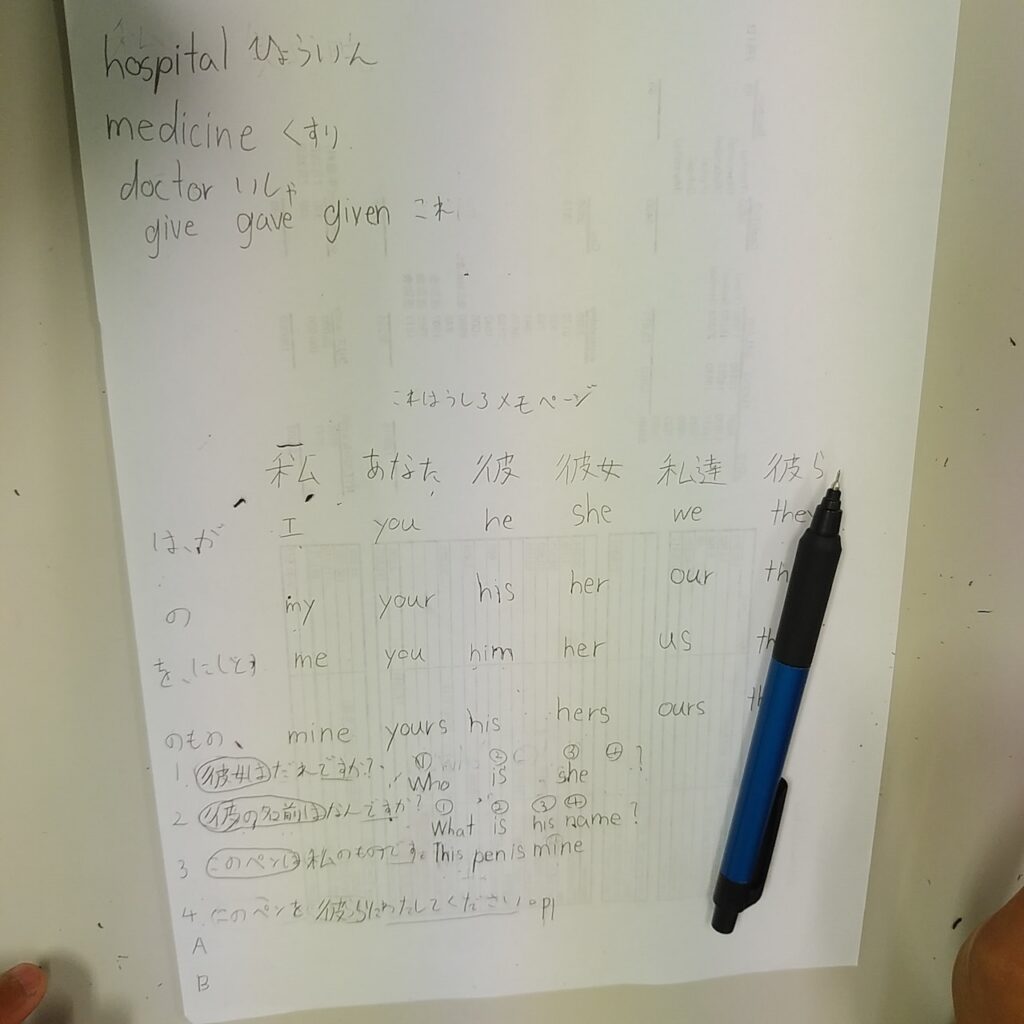 hospital ひょういん
medicine くすり
doctor いしゃ
give gave given これ
これはうしろメモページ
私 あなた 彼 彼女 私達 彼ら
は、が I you he she we they
の my your his her our th
を、に me you him her us th
のもの、 mine yours his hers ours th
1. 彼女はだれですか? ① ② ③ ④ ?
Who is she
2 彼の名前はなんですか? ① ② ③ ④
What is his name ?
3 このペンは私のものです。This pen is mine
4. このペンを彼らにわたしてください。pl
A
B